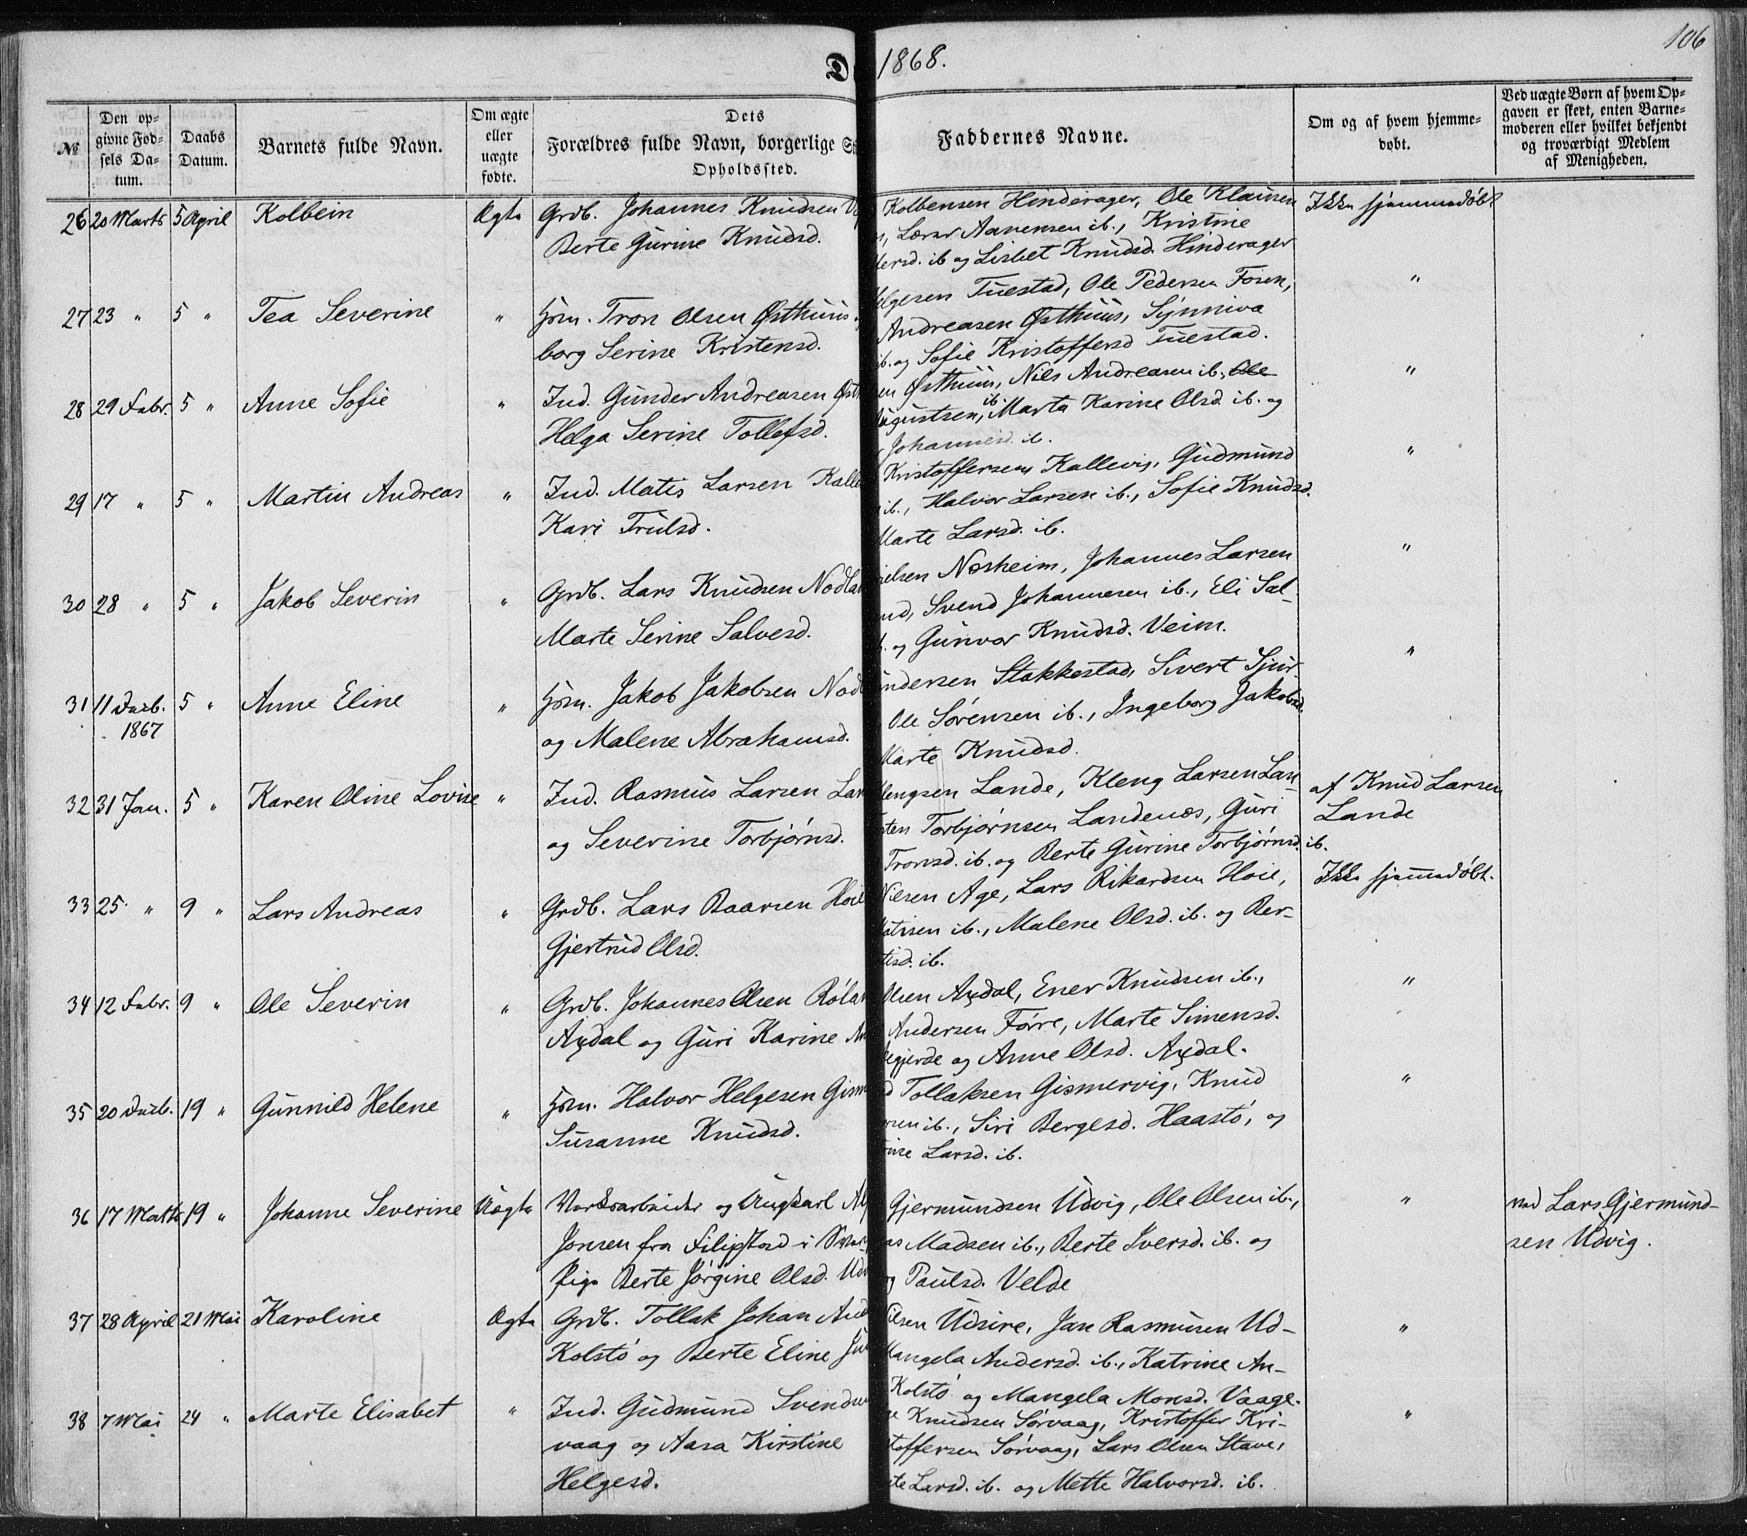 1868.
106
№
Den op-
givne Fød-
sels Da-
tum.
Daabs
Datum.
Barnets fulde Navn.
Om ægte
eller
uægte
fødte.
Dets
Forældres fulde Navn, borgerlige
Opholdssted.
Faddernes Navne.
Om og af hvem hjemme-
døbt.
Ved uægte Børn af hvem Op-
gaven er skeet, enten Barne-
moderen eller hvilket bekjendt
og troværdigt Medlem
af Menigheden.
26 20 Marts 5 April Kolbein Ægte Grdb. Johannes Knudsen
Berte Gurine Knudsd.
Kolbensen Hinderager, Ole Klausen
Lærer Aanensen ib., Kristine
ib og Lisbet Knudsd. Hinderager
Ikke hjemmedøbt
27 23 " 5 " Tea Severine " Hsm. Tron Olsen Østhuus
borg Serine Kristensd.
Tuestad, Ole Pedersen Fosen,
Andreasen Østhuus, Synniva
ib. og Sofie Kristoffersd Tuestad.
"
28 29 Febr. 5 " Anne Sofie " Ind. Gunder Andreasen
Helga Serine Tollefsd.
Østhuus, Nils Andreasen ib., Ole
ib. Marta Karine Olsd. ib. og
Johannesd. ib.
"
29 17 " 5 " Martin Andreas " Ind. Matis Larsen
Kari Trulsd.
Kristoffersen Kallevig, Gudmund
ib., Halvor Larsen ib., Sofie Knudsd.
Marte Larsd. ib.
"
30 28 " 5 " Jakob Severin " Grdb. Lars Knudsen
Marte Serine Salvesd.
Nesheim, Johannes Larsen
Svend Johannesen ib., Eli Sal-
og Gunvor Knudsd. Veim.
"
31 11 Decb. 5 " Anne Eline " Hsm. Jakob Jakobsen
1867
og Malene Abrahamsd.
Stakkestad, Sivert Sjur-
Ole Sørensen ib., Ingeborg Jakobsd.
Marte Knudsd.
"
32 31 Jan. 5 " Karen Oline Lovise " Ind. Rasmus Larsen
og Severine Torbjørnsd.
Lande, Kleng Larsen Lan-
Torbjørnsen Landenæs, Guri
Tronsd. ib. og Berte Gurine Torbjørnsd. ib.
af Knud Larsen
Lande
33 25 " 9 " Lars Andreas " Grdb. Lars Baarsen
Gjertrud Olsd.
Age, Lars Rikardsen Hoie,
ib., Malene Olsd. ib. og Ber-
ib.
Ikke hjemmedøbt.
34 12 Febr. 9 " Ole Severin " Grdb. Johannes Olsen
Axdal og Guri Karine
Olsen Axdal, Ener Knudsen ib.,
Andersen Førre, Marte Simensd.
og Anne Olsd. Axdal.
"
35 20 Decb. 19 " Gunnild Helene " Hsm. Halvor Helgesen
Susanne Knudsd.
Tollaksen Gismervig, Knud
ib., Siri Bergesd. Haastø, og
Larsd. ib.
"
36 17 Marts 19 " Johanne Severine Uægte Værksarbeider og Ungkarl
Jonsen fra Filipstad i
Pige Berte Jørgine Olsd.
Gjermundsen Udvig, Ole Olsen ib.,
Madsen ib., Berte Iversd. ib. og
Paulsd. Velde
"
ved Lars Gjermund-
sen Udvig.
37 28 April 21 Mai Karoline Ægte Grdb. Tollak Johan
Kolstø og Berte Eline
Udsire, Jan Rasmusen Ud-
Mangela Andersd. ib., Katrine An-
Kolstø og Mangela Monsd. Vaage.
"
38 7 Mai 24 " Marte Elisabet " Ind. Gudmund
vaag og Aasa Kirstine
Helgesd.
Knudsen Sørvaag, Kristoffer Kri-
stoffersen Sørvaag, Lars Olsen Stave,
Larsd. ib. og Mette Halvorsd. ib.
"